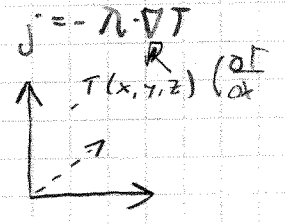 j = - λ · ∇T
T(x,y,z) (∂T
∂x